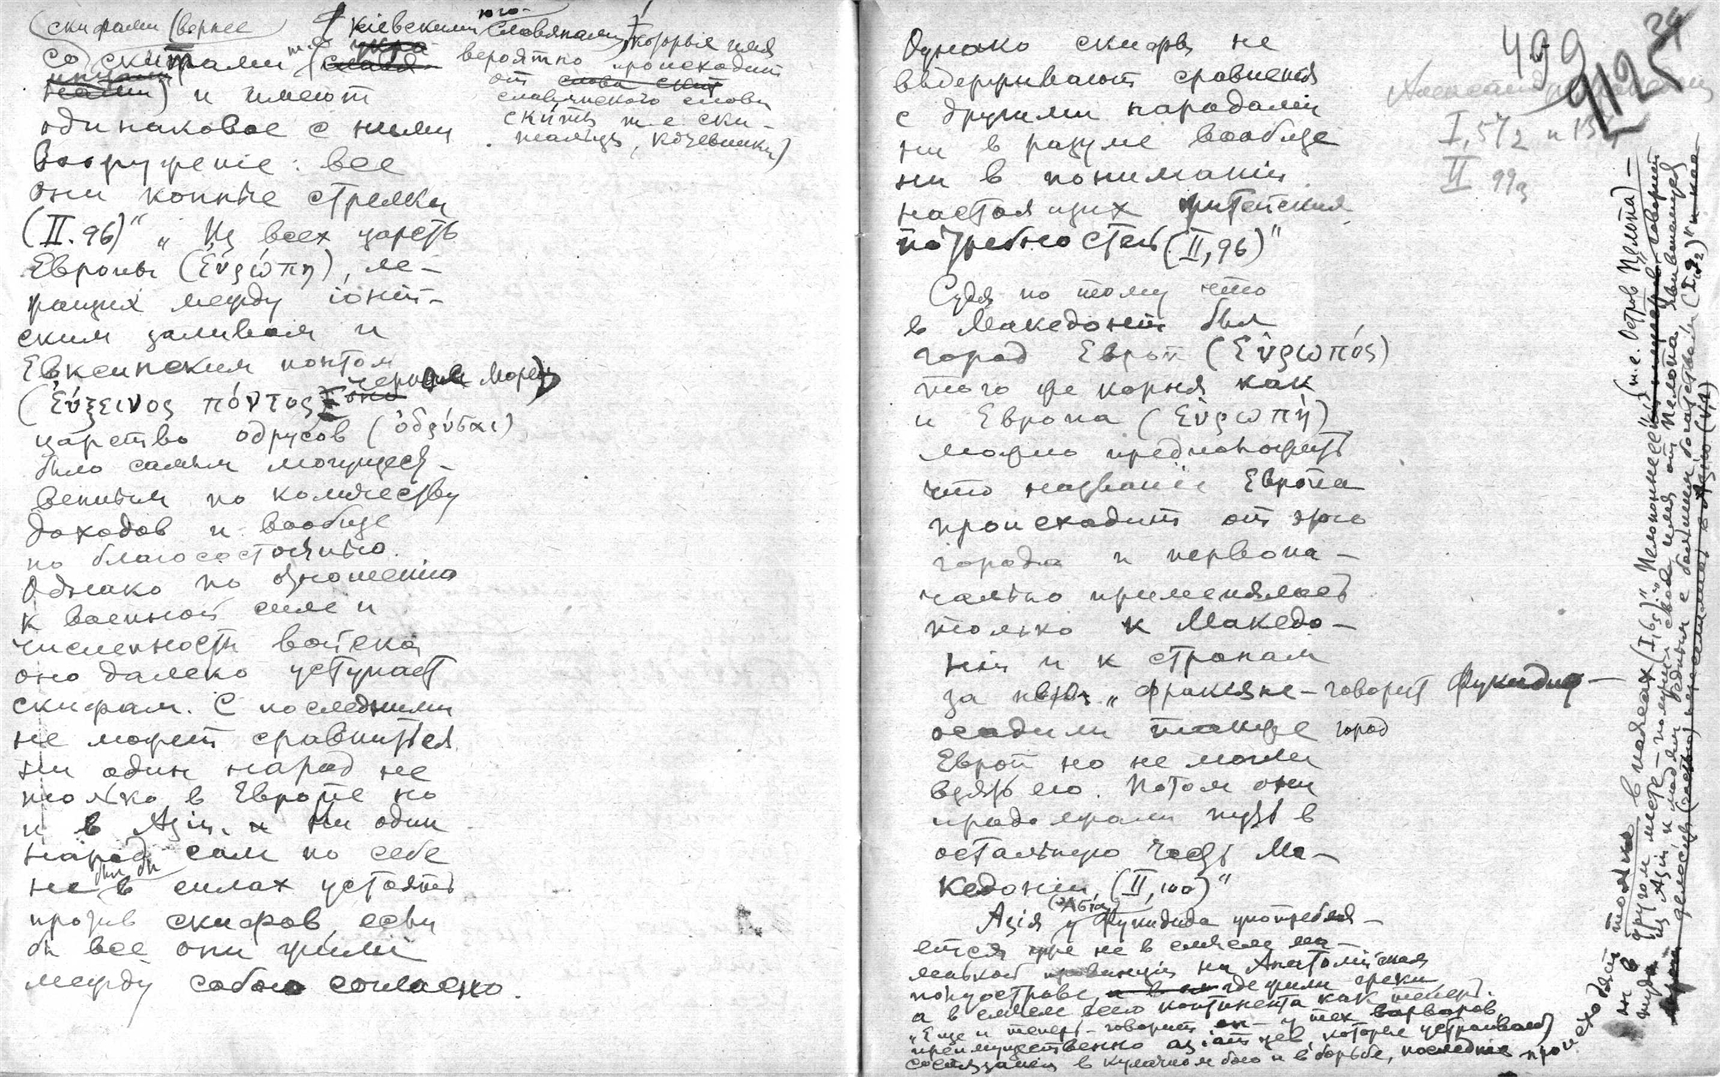 скифами (вернее
со скитами
и имеют
одинаковое с ними
вооруженіе: все
они конные стрелки
(II. 96)" „Из всех царств
Европы (Εὐρώπη), ле-
жащих между іоній-
ским заливом и
Евксинским понтом
(Εὔξεινος πόντος Черное море)
царство одрусов (ὀδρύσαι)
было самым могущест-
венным по количеству
доходов и вообще
по благосостоянію.
Однако по отношенію
к военной силе и
численности войска
оно далеко уступает
скифам. С последними
не может сравниться
ни один народ не
только в Европе но
и в Азіи. Ни один
народ сам по себе
не был бы в силах устоять
против скифов, если
бы все они жили
между собою согласно.
кіевскими юго-славянами, которых имя
вероятно происходит
от
славянского слова
скить т-е ски-
талец, кочевники)
Однако скифы не
выдерживают сравненія
с другими народами
ни в разуме вообще
ни в пониманіи
настоящих житейских
потребностей (II, 96)"
Судя по тому что
в Македоніи был
город Европ (Εὐρωπός)
того же корня как
и Европа (Εὐρώπη)
можно предположить
что названіе Европа
происходит от этого
города и первона-
чально применялось
только к Македо-
ніи и к странам
за нею. „Фракияне - говорит Фукидид -
осадили также город
Европ но не могли
взять его. Потом они
продолжали путь в
остальную часть Ма-
кедоніи, (II, 100)"
Азія (Ἀσία) у Фукидида употребля-
ется уже не в смысле ма-
ленькой провинціи на Анатолійском
полуострове, где жили греки
а в смысле всего континента как теперь.
„Еще и теперь - говорит он - у тех варваров,
преимущественно азіатцев, которые устраивают
состязанія в кулачном бою и в борьбе, последніе происходят только в поясах (I, 6)". „Пелопоннес (т.е. Остров Пелопа) -
ни в другом месте - получил свое имя от Пелопа явившегося
туда из Азіи к людям бедным с большим богатством (I, 9)"
499
34
I, 57/2 и 137
II 99